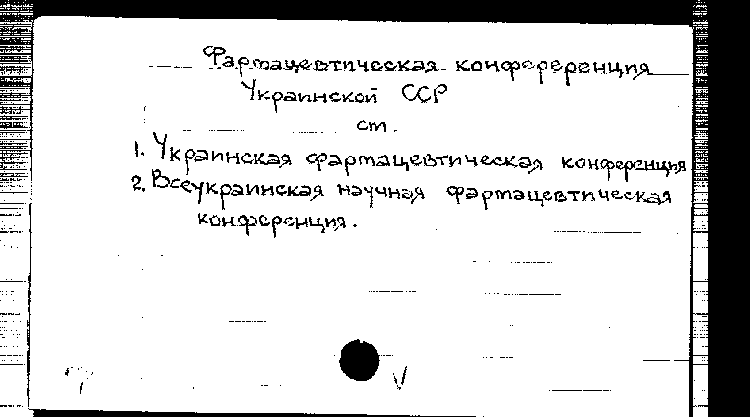 Фармацевтическая конференция
Украинской ССР
ст.
1. Украинская фармацевтическая конференция
2. Всеукраинская научная фармацевтическая
конференция.
V